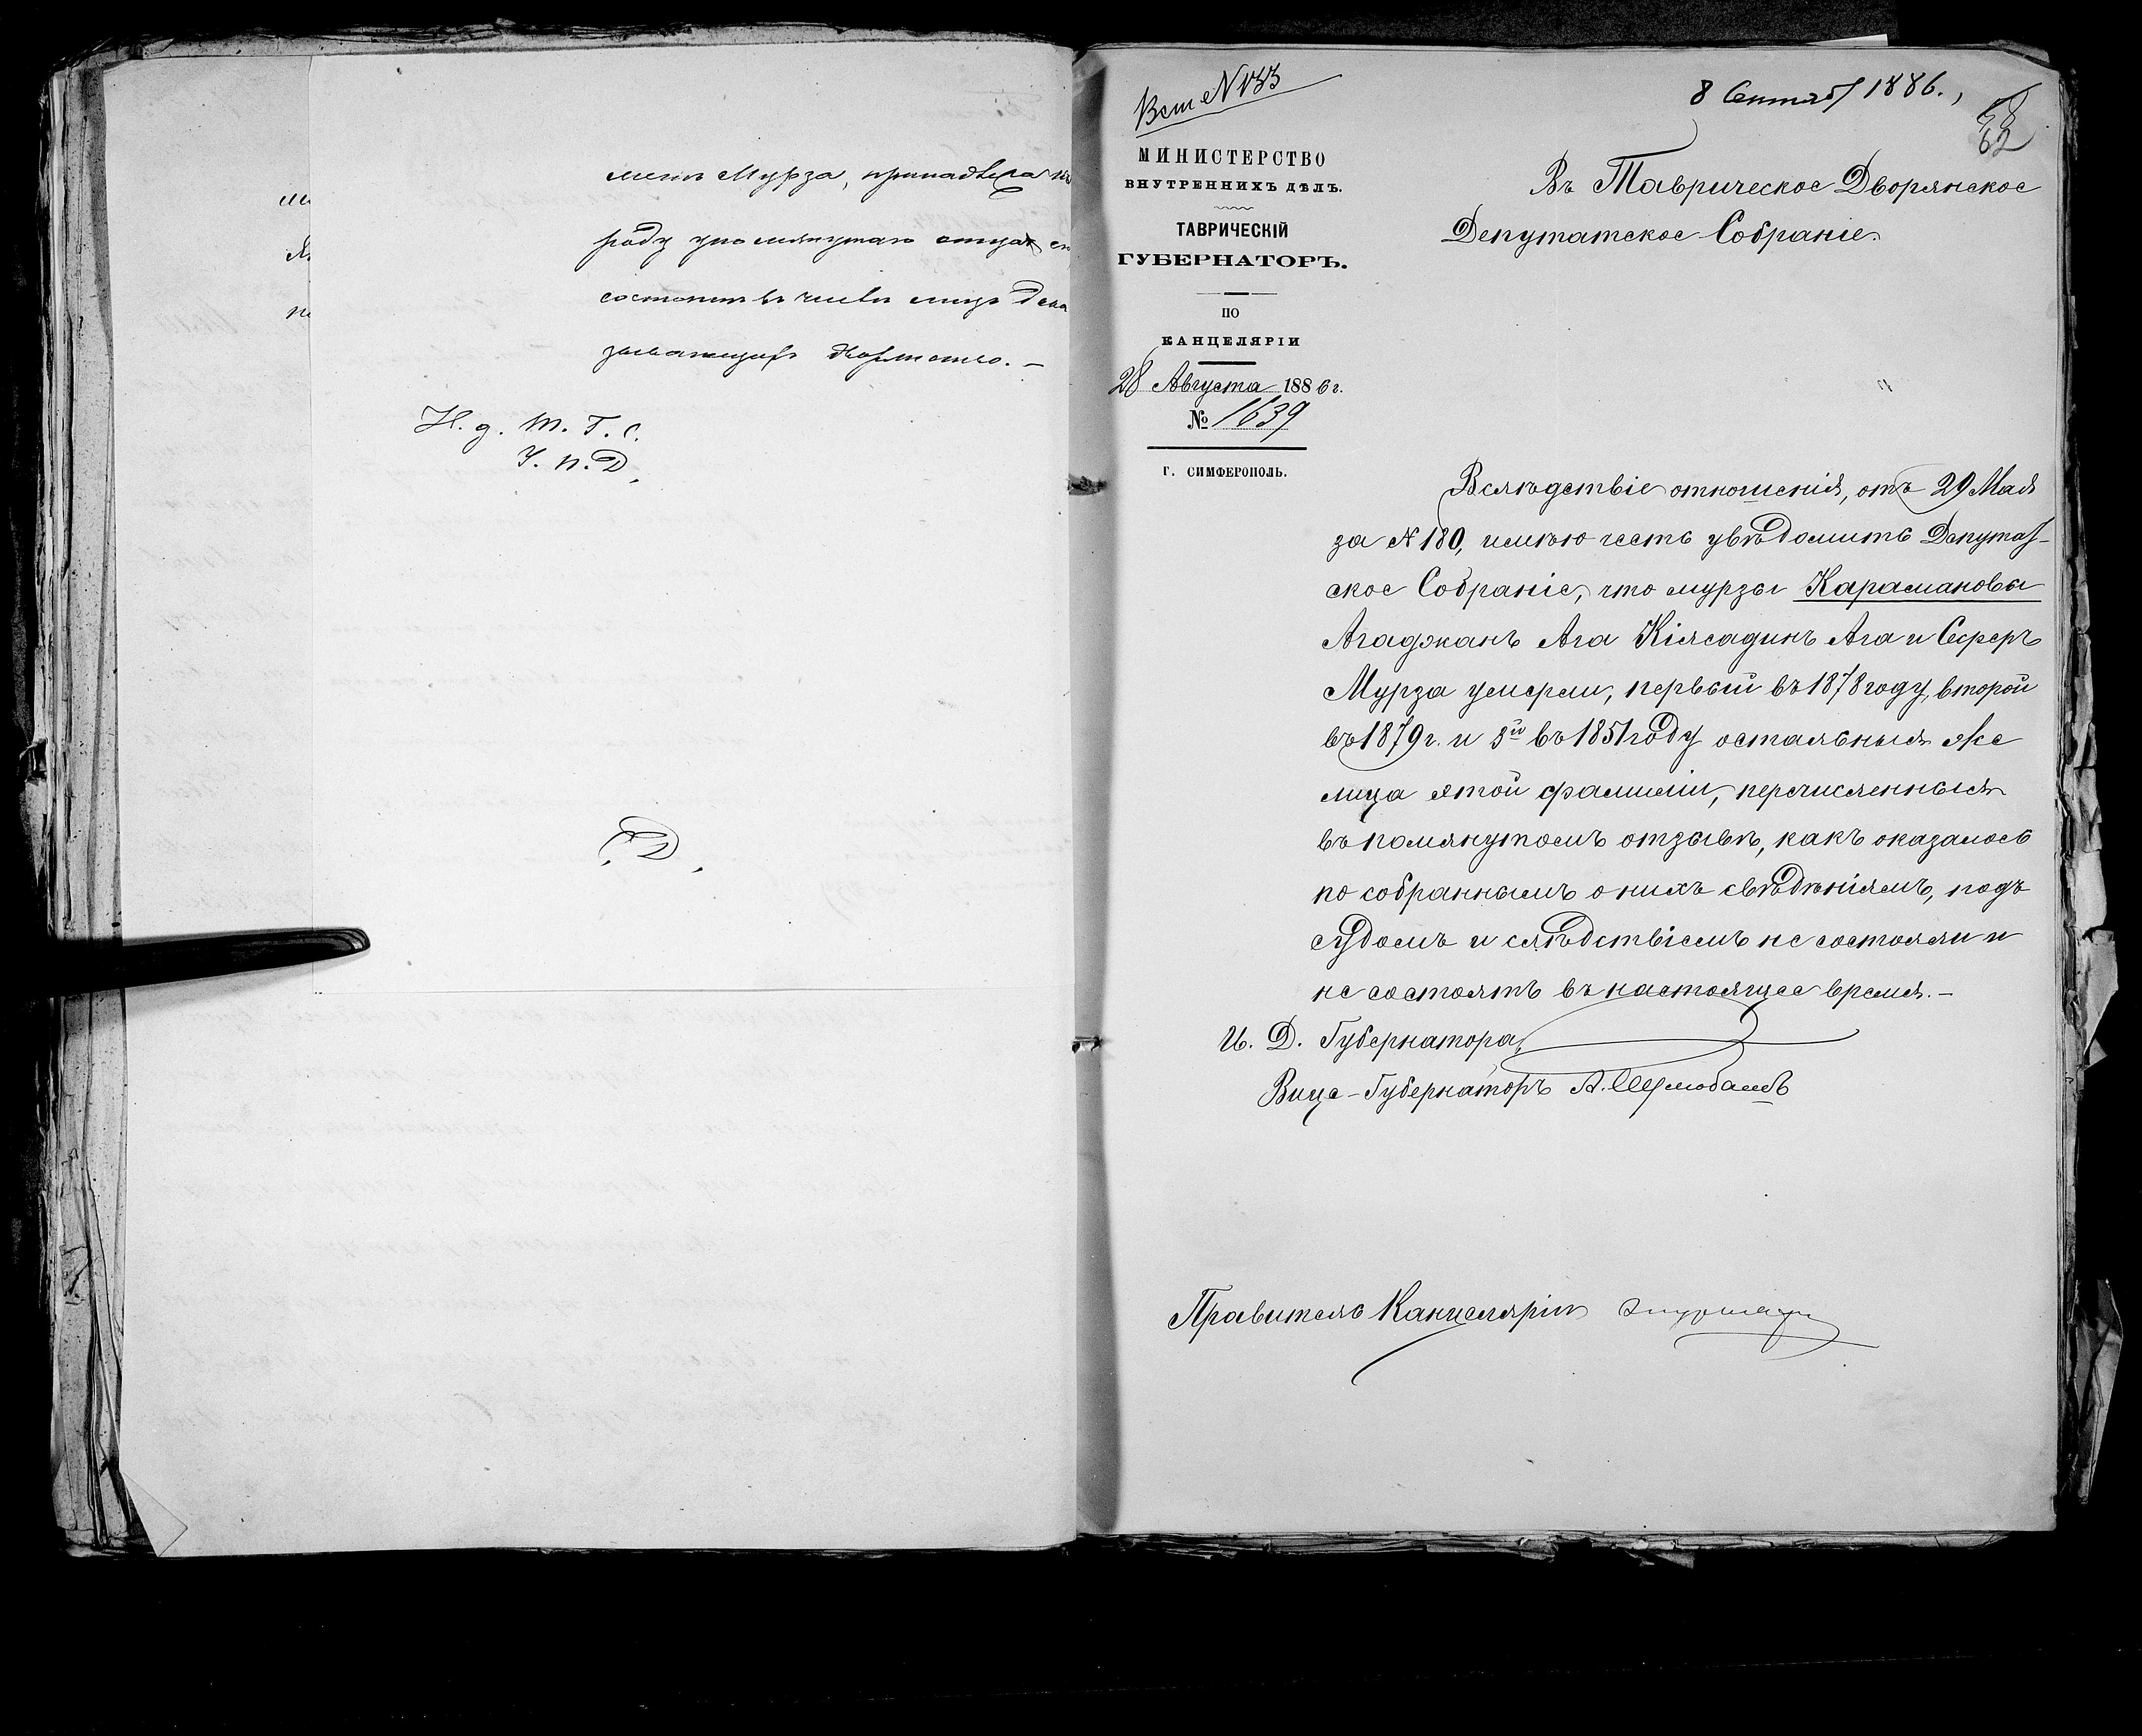 мент Мурза, принадлежа къ
роду упомянутаго отца
состоитъ въ числѣ лицъ дока
зывающихъ дворянство. —
Н. д. Т. Г. С.
У. п. Д.
Д.
Вст № 133
8 Сентяб 1886.
62
МИНИСТЕРСТВО
ВНУТРЕННИХЪ ДѢЛЪ.
ТАВРИЧЕСКІЙ
ГУБЕРНАТОРЪ.
ПО
КАНЦЕЛЯРІИ
28 Августа 1886 г.
№ 1639
Г. СИМФЕРОПОЛЬ.
Въ Таврическое Дворянское
Депутатское Собраніе.
Вслѣдствіе отношенія, отъ 29 Мая
за № 180, имѣю честь увѣдомить Депутат-
ское Собраніе, что мурзы Карамановы
Агаджанъ Ага Кіясадинъ Ага и Сеферъ
Мурза умерли, первый въ 1878 году, второй
въ 1879 г. и 3й въ 1851 году остальныя же
лица этой фамиліи, перечисленныя
въ помянутомъ отзывѣ, какъ оказалось
по собраннымъ о нихъ свѣдѣніямъ, подъ
судомъ и слѣдствіемъ не состояли и
не состоятъ въ настоящее время. —
И. Д. Губернатора,
Вице-Губернаторъ А.
Правитель Канцеляріи